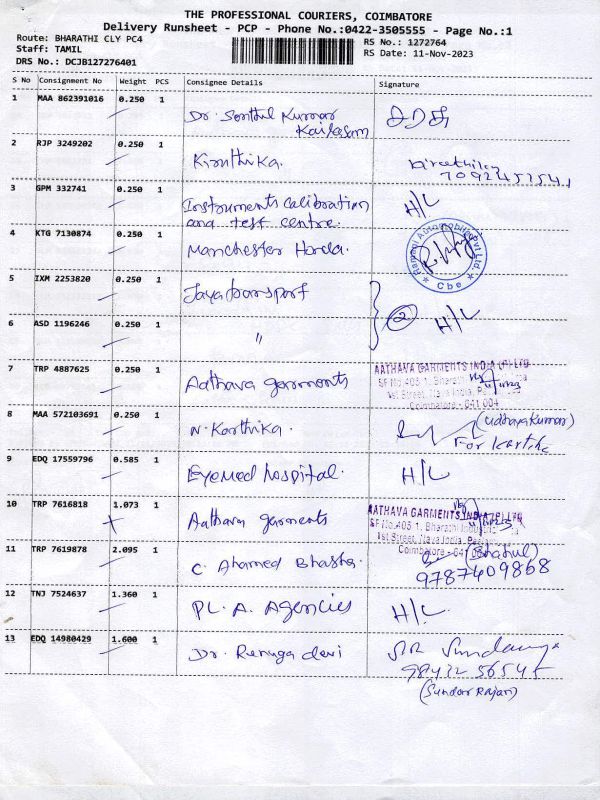 THE PROFESSIONAL COURIERS, COIMBATORE
Delivery Runsheet - PCP - Phone No.:0422-3505555 - Page No.:1
Route: BHARATHI CLY PC4
RS No.: 1272764
Staff: TAMIL
RS Date: 11-Nov-2023
DRS No.: DCJB127276401
S No Consignment No Weight PCS Consignee Details Signature
1 MAA 862391016 0.250 1 Dr. Senthil Kumar
Kailasam
2 RJP 3249202 0.250 1 Kiruthika.
3 GPM 332741 0.250 1 Instruments Calibration H/L
and test centre.
4 KTG 7130874 0.250 1 Manchester Honda. Cbe
5 IXM 2253820 0.250 1 Jaya transport
6 ASD 1196246 0.250 1 " 2 H/L
7 TRP 4887625 0.250 1 Aathava garments AATHAVA GARMENTS INDIA (P) LTD
SF No.405 1, Bharathi
1st Street, Nava India,
Coimbatore - 641 004
8 MAA 572103691 0.250 1 N. Karthika. (Udhayakumar)
For Karthi
9 EDQ 17559796 0.585 1 Eyemed hospital. H/L
10 TRP 7616818 1.073 1 Aathava garments AATHAVA GARMENTS INDIA (P) LTD
SF No.405 1, Bharathi
1st Street, Nava India,
Coimbatore - 641 004
11 TRP 7619878 2.095 1 C. Ahamed Bhasha. (Shahul)
9787409868
12 TNJ 7524637 1.360 1 PL. A. Agencies H/L
13 EDQ 14980429 1.600 1 Dr. Renuga devi
98432 56545
(Sundar Rajan)